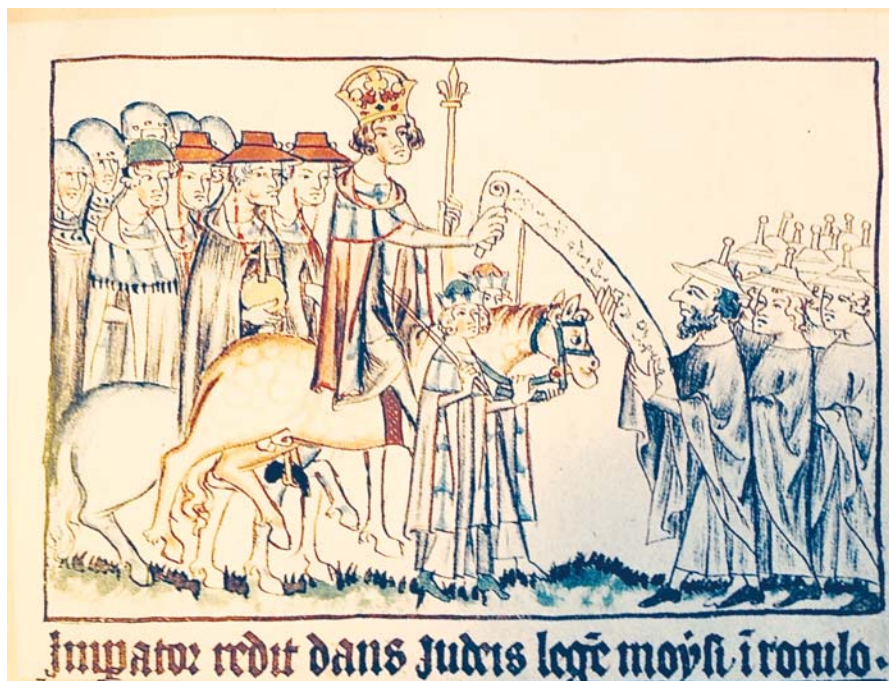 Imꝑator redit dans Judeis legē moẏsi ī rotulo.